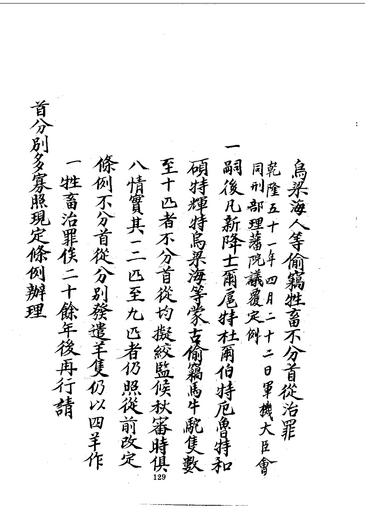 烏梁海人等偷竊牲畜不分首從治罪
乾隆五十一年四月二十二日軍機大臣會
同刑部理藩院議覆定例
一嗣後凡新降土爾扈特杜爾伯特厄魯特和
碩特輝特烏梁海等蒙古偷竊馬牛駝隻數
至十匹者不分首從均擬絞監候秋審時俱
入情實其一二匹至九匹者仍照從前改定
條例不分首從分別發遣羊隻仍以四羊作
一牲畜治罪俟二十餘年後再行請
首分別多寡照現定條例辦理
129